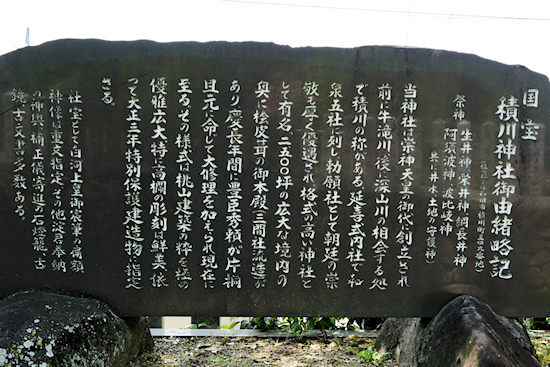 国宝
積川神社御由緒略記
(岸和田市積川町三五九番地)
祭神 生井神 栄井神 綱長井神
阿須波神 波比岐神
(共に井水土地の守護神)
当神社は崇神天皇の御代に創立され
前に牛滝川後に深山川の相会する処
で積川の称がある延喜式内社で和
泉五社に列し勅願社として朝廷の崇
敬も厚く優遇され格式の高い神社と
して有名二五〇〇坪の広大な境内の
奥に桧皮葺の御本殿(三間社流造)が
あり慶長年間に豊臣秀頼が片桐
且元に命じて大修理を加えられ現在に
至るその様式は桃山建築の粋を極め
優雅広大特に高欄の彫刻は鮮美依
って大正三年特別保護建造物に指定
さる。
社宝として白河上皇御宸筆の扁額
神像は重文指定、その他淀君奉納
の神輿楠正儀寄進石燈籠、古
鏡、古文書多数ある。